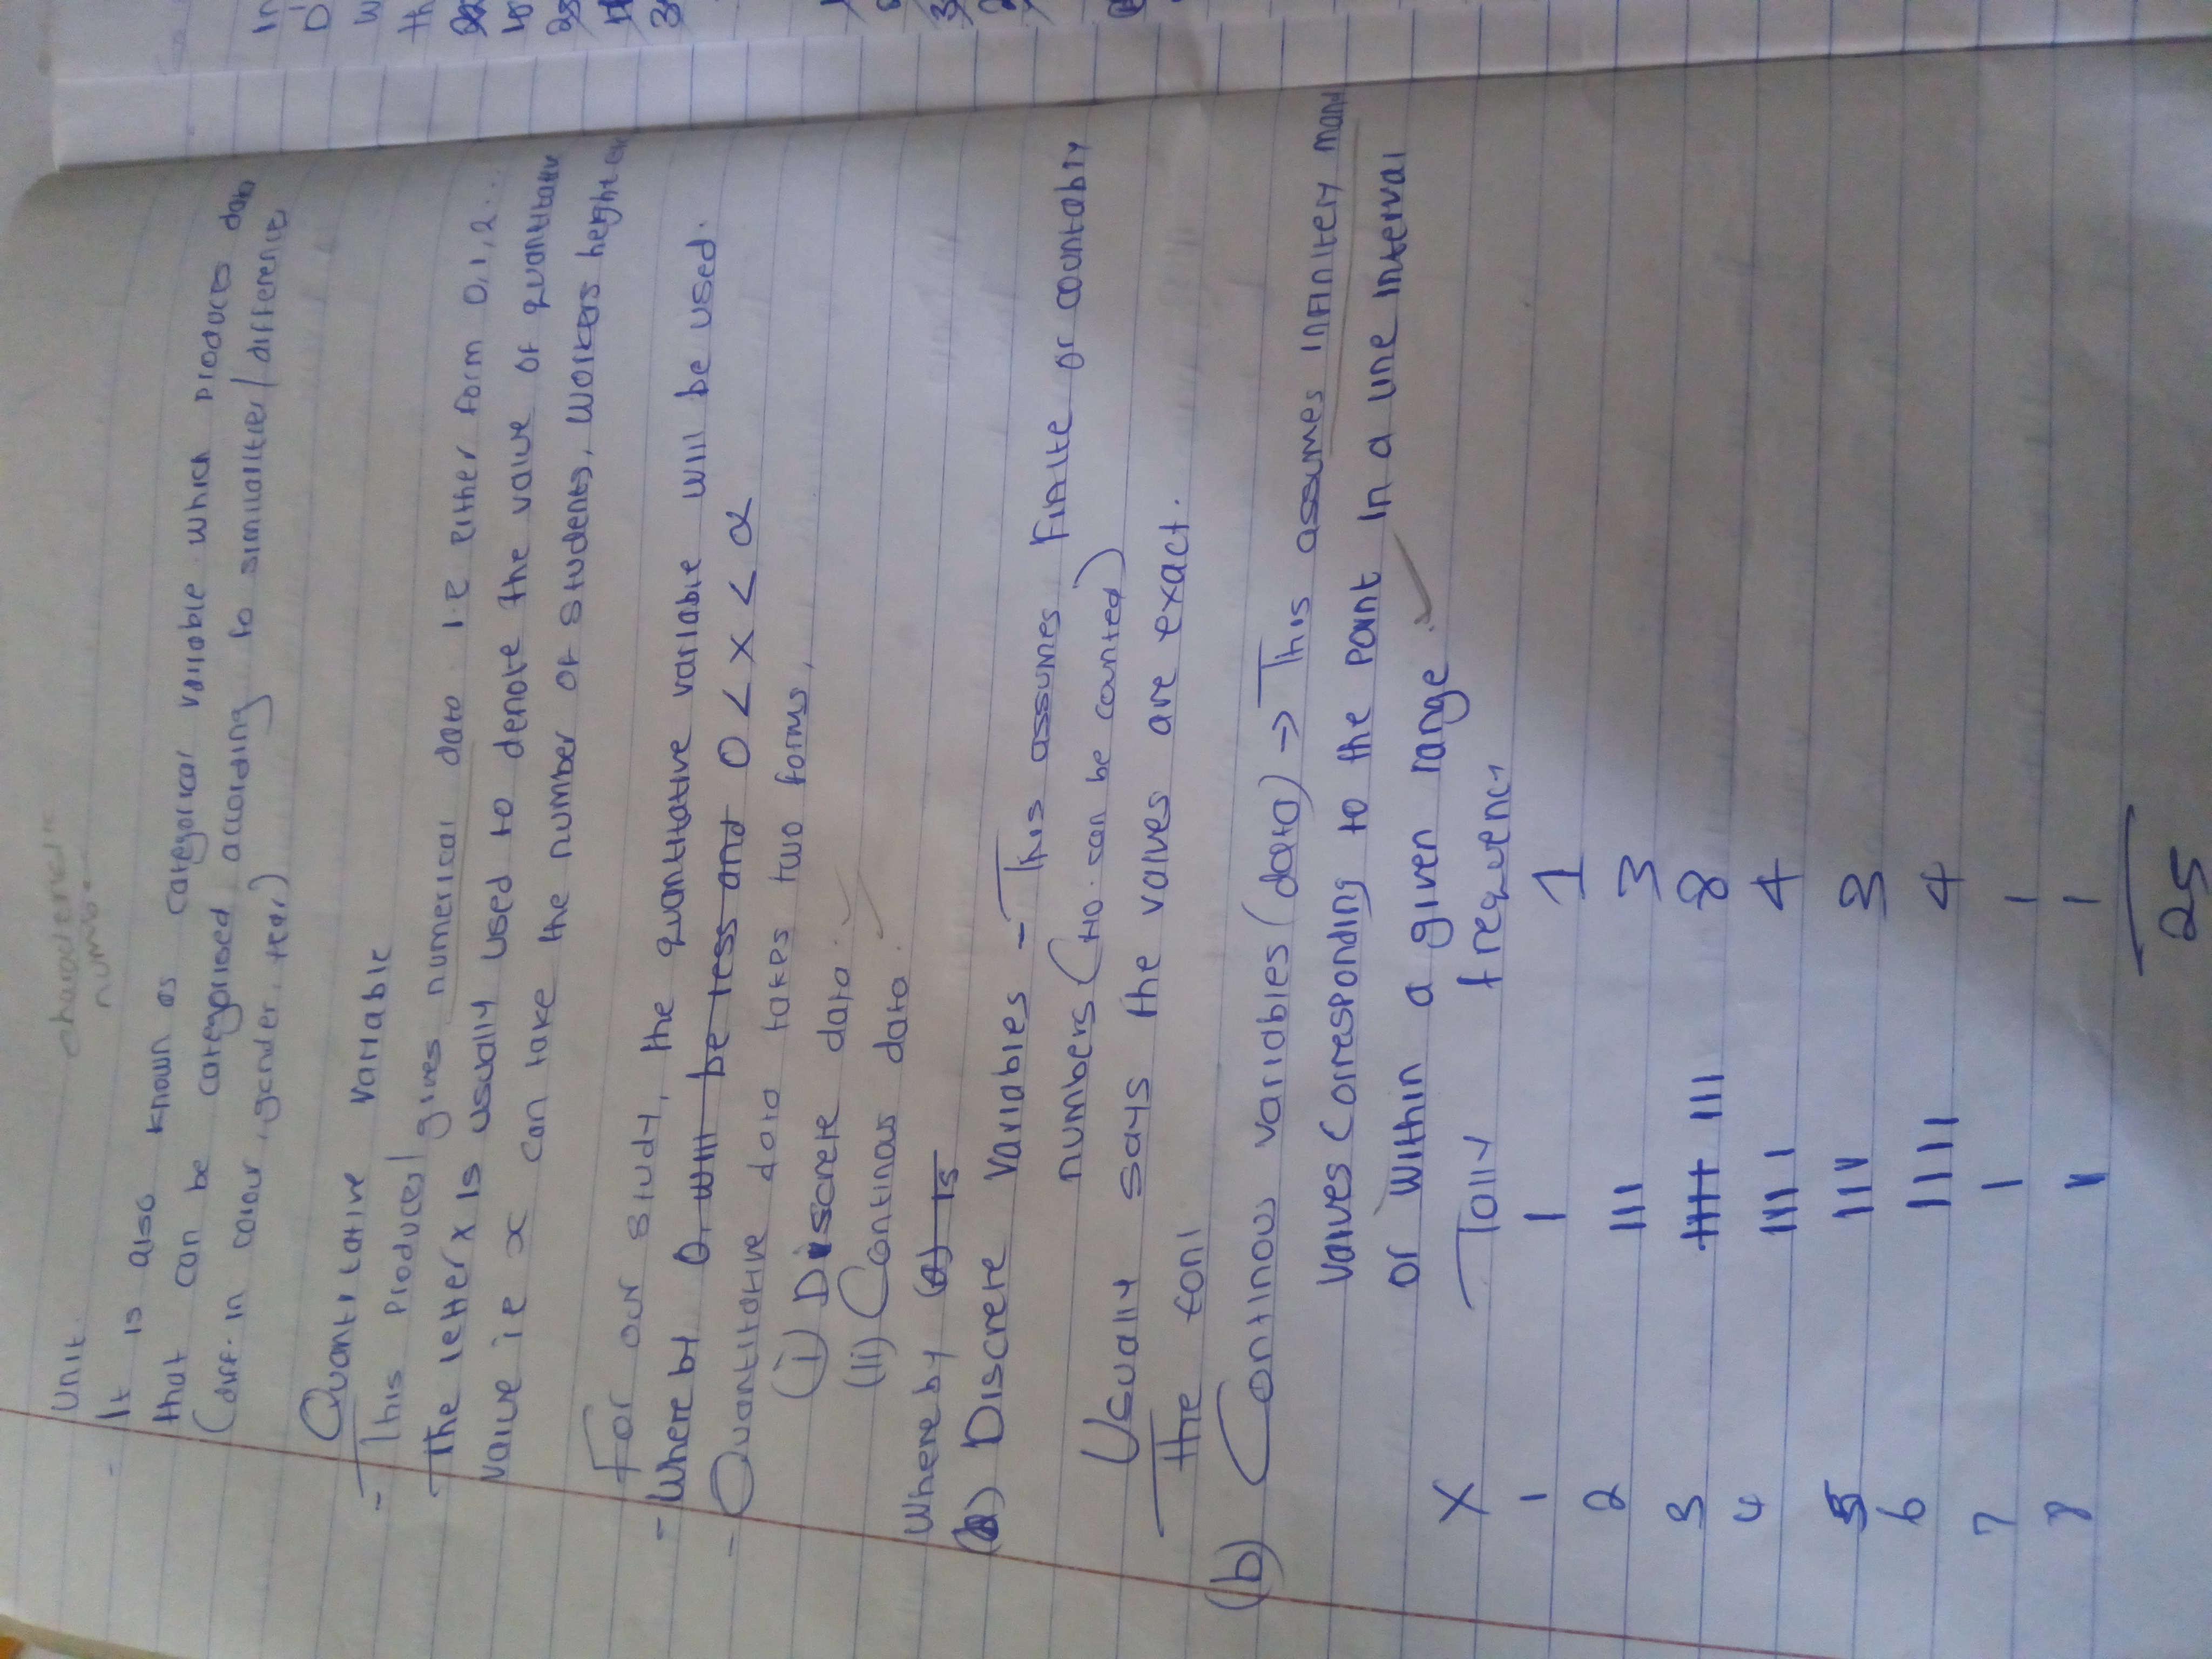 characteristic
Unit.
- It is also known as categorical variable which produces data
that can be categorised according to similarities/difference
(diff. in colour, gender, year)
Quantitative variable
- This produces/gives numerical data i.e either form 0,1,2...
- The letter x is usually used to denote the value of quantitative
value ie x can take the number of students, workers height
For our study, the quantitative variable will be used.
- Where by 0, will be less and 0 < x < α
- Quantitative data takes two forms,
(i) Discrete data
(ii) Continous data.
Where by (a) is
(a) Discrete variables - This assumes finite or countably
numbers (no. can be counted)
Usually says the values are exact.
The
(b) Continous variables (data) → This assumes infinitely many
values corresponding to the point in a line interval
or within a given range.
X Tally frequency
1 | 1
2 ||| 3
3 |||| ||| 8
4 |||| 4
5 ||| 3
6 |||| 4
7 | 1
8 | 1
25